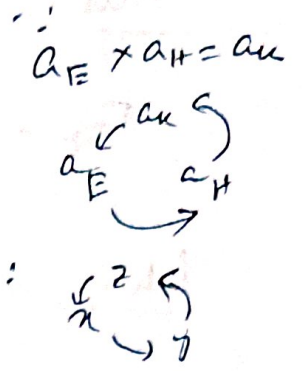 ∴
a_E × a_H = a_K
a_K
a_E a_H
: z
x y